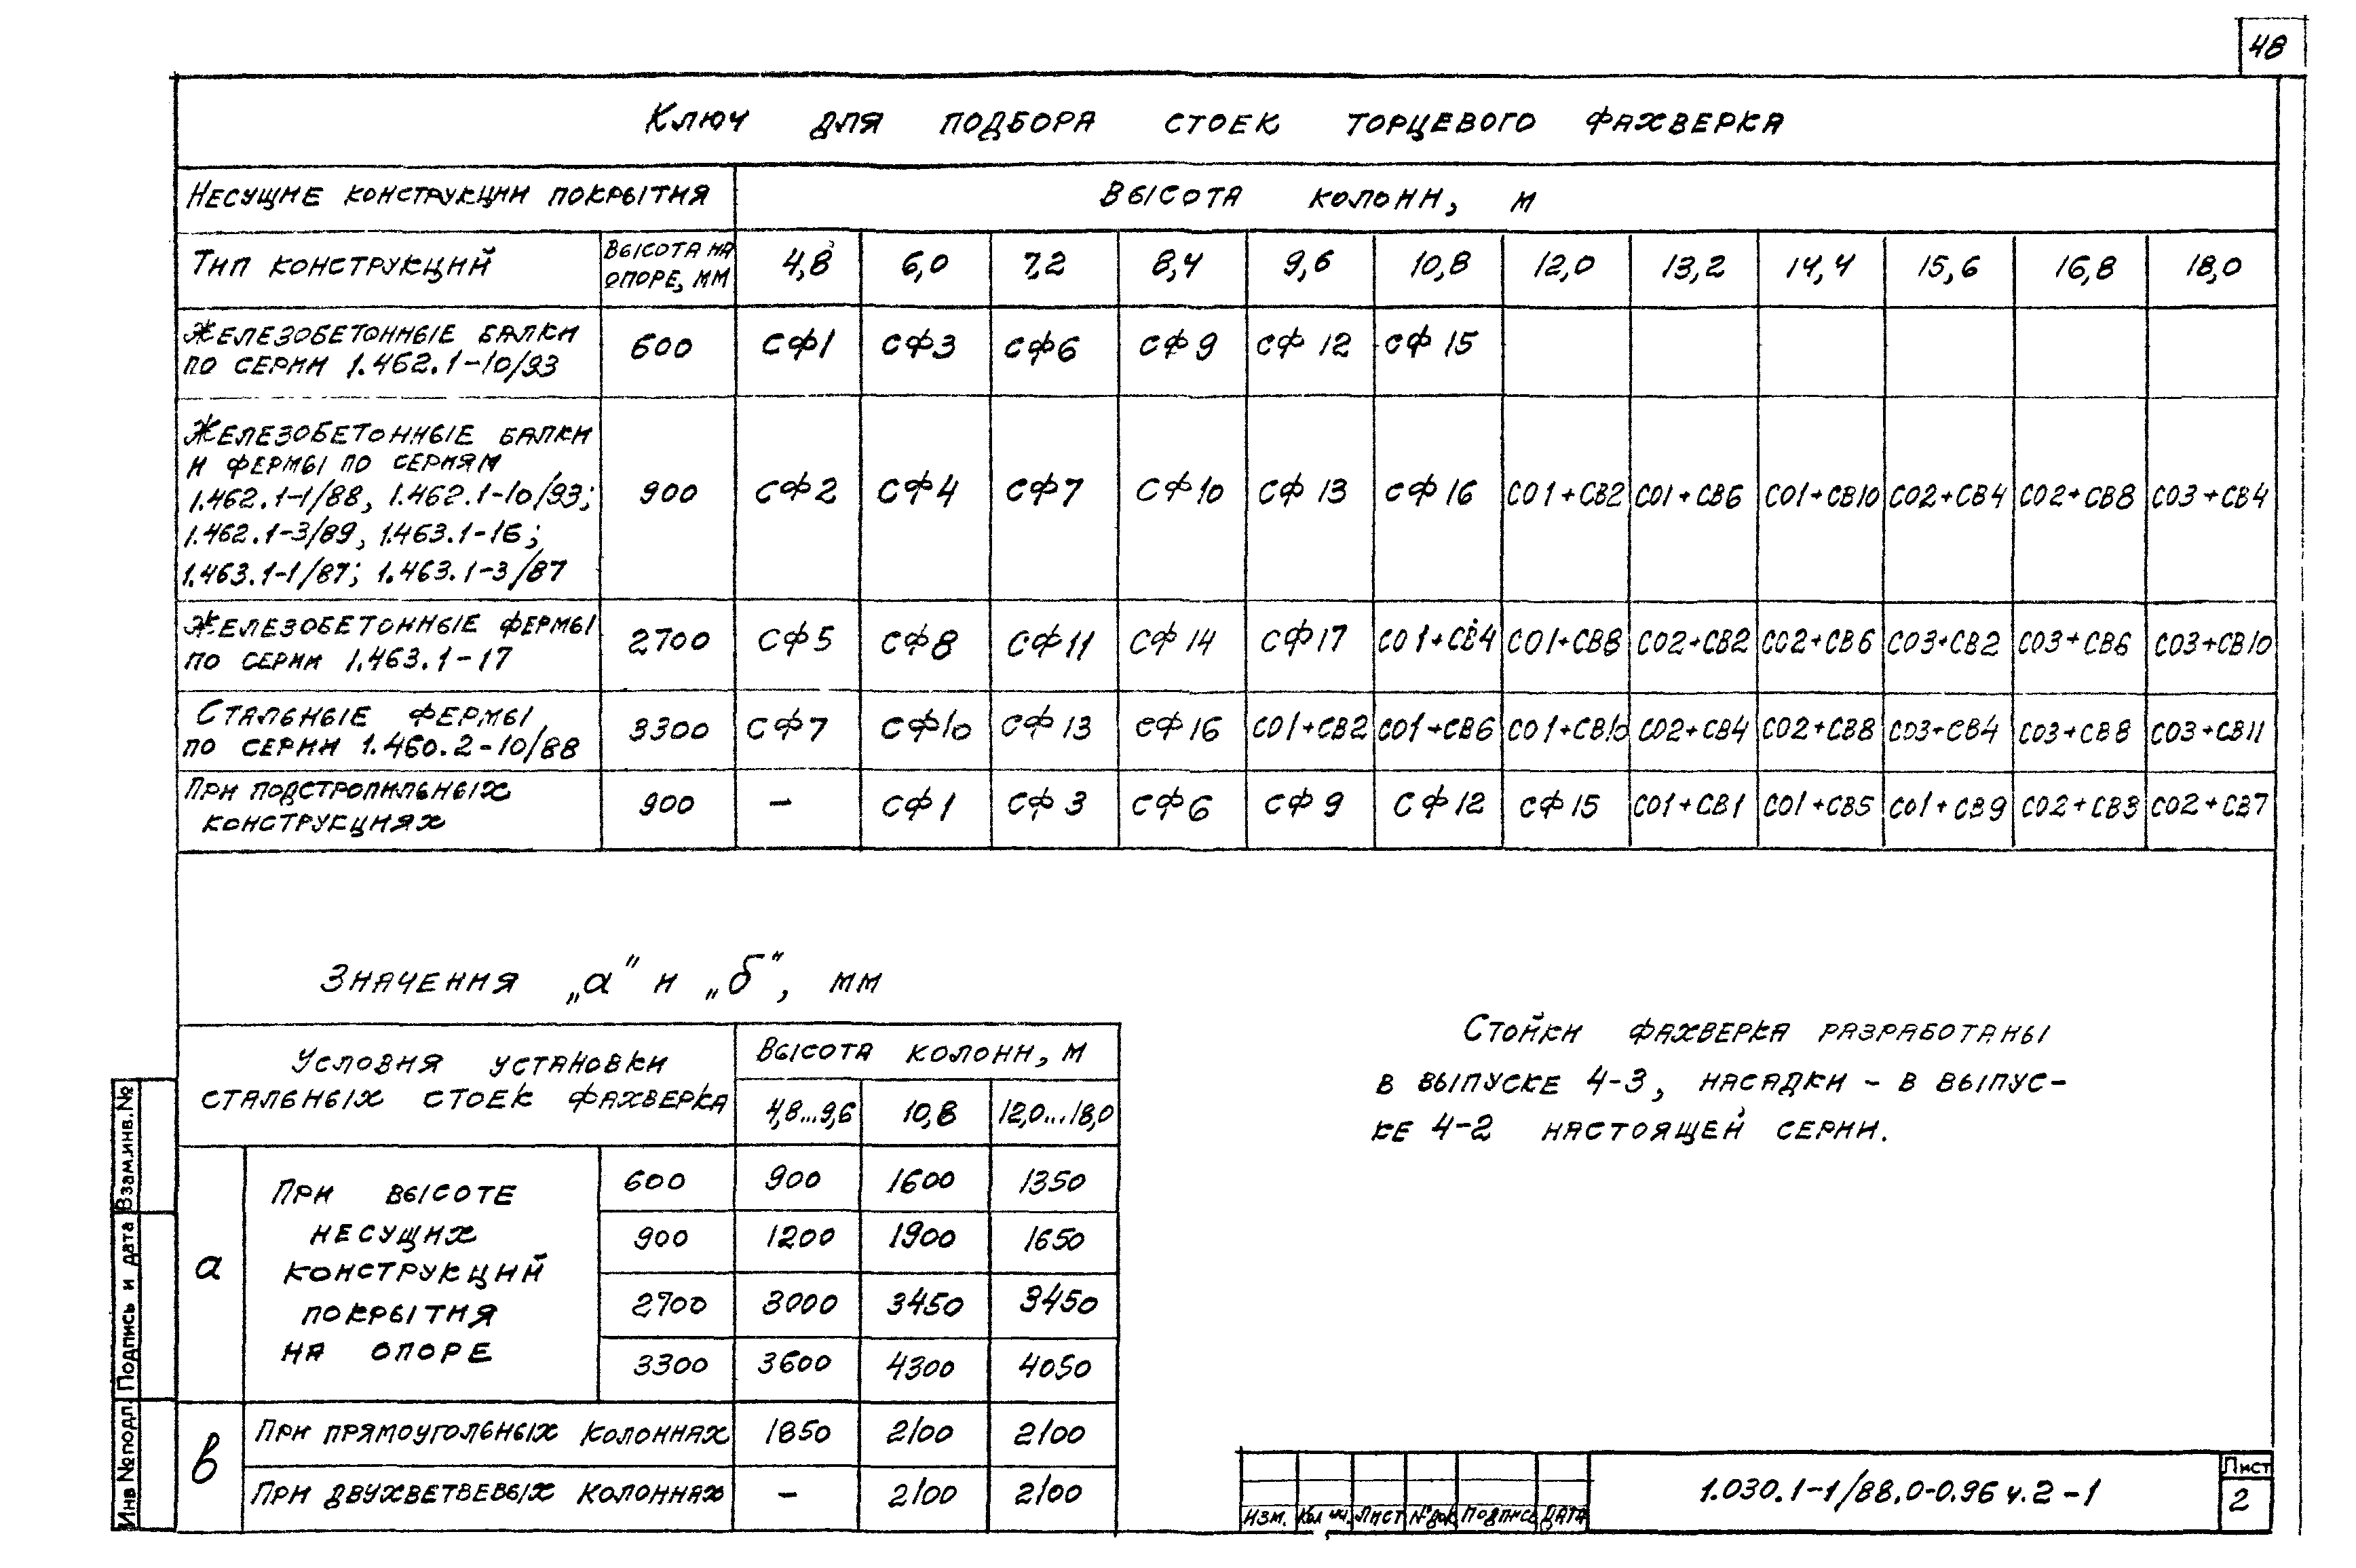 48
Ключ для подбора стоек торцевого фахверка
Несущие конструкции покрытия Высота колонн, м
Тип конструкций Высота на опоре, мм 4,8 6,0 7,2 8,4 9,6 10,8 12,0 13,2 14,4 15,6 16,8 18,0
Железобетонные балки
по серии 1.462.1-10/93 600 СФ1 СФ3 СФ6 СФ9 СФ12 СФ15
Железобетонные балки
и фермы по сериям
1.462.1-1/88, 1.462.1-10/93; 900 СФ2 СФ4 СФ7 СФ10 СФ13 СФ16 СО1+СВ2 СО1+СВ6 СО1+СВ10 СО2+СВ4 СО2+СВ8 СО3+СВ4
1.462.1-3/89, 1.463.1-16;
1.463.1-1/87; 1.463.1-3/87
Железобетонные фермы
по серии 1.463.1-17 2700 СФ5 СФ8 СФ11 СФ14 СФ17 СО1+СВ4 СО1+СВ8 СО2+СВ2 СО2+СВ6 СО3+СВ2 СО3+СВ6 СО3+СВ10
Стальные фермы
по серии 1.460.2-10/88 3300 СФ7 СФ10 СФ13 СФ16 СО1+СВ2 СО1+СВ6 СО1+СВ10 СО2+СВ4 СО2+СВ8 СО3+СВ4 СО3+СВ8 СО3+СВ11
При подстропильных
конструкциях 900 – СФ1 СФ3 СФ6 СФ9 СФ12 СФ15 СО1+СВ1 СО1+СВ5 СО1+СВ9 СО2+СВ3 СО2+СВ7
Значения „а" и „б", мм
Условия установки
стальных стоек фахверка
Высота колонн, м
4,8...9,6 10,8 12,0...18,0
а
При высоте
несущих
конструкций
покрытия
на опоре
600 900 1600 1350
900 1200 1900 1650
2700 3000 3450 3450
3300 3600 4300 4050
в
При прямоугольных колоннах 1850 2100 2100
При двухветвевых колоннах – 2100 2100
Стойки фахверка разработаны
в выпуске 4-3, насадки - в выпус-
ке 4-2 настоящей серии.
Взам.инв.№
Подпись и дата
Инв №подл.
Изм. Кол уч. Лист №док Подпись Дата
1.030.1-1/88.0-0.96 ч.2-1
Лист
2